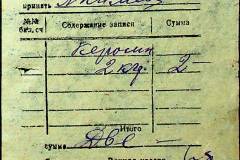 принять
№№ Содержание записи Сумма
бил. сч
Керосин
2 кгр. 2
Итого
сумма Две